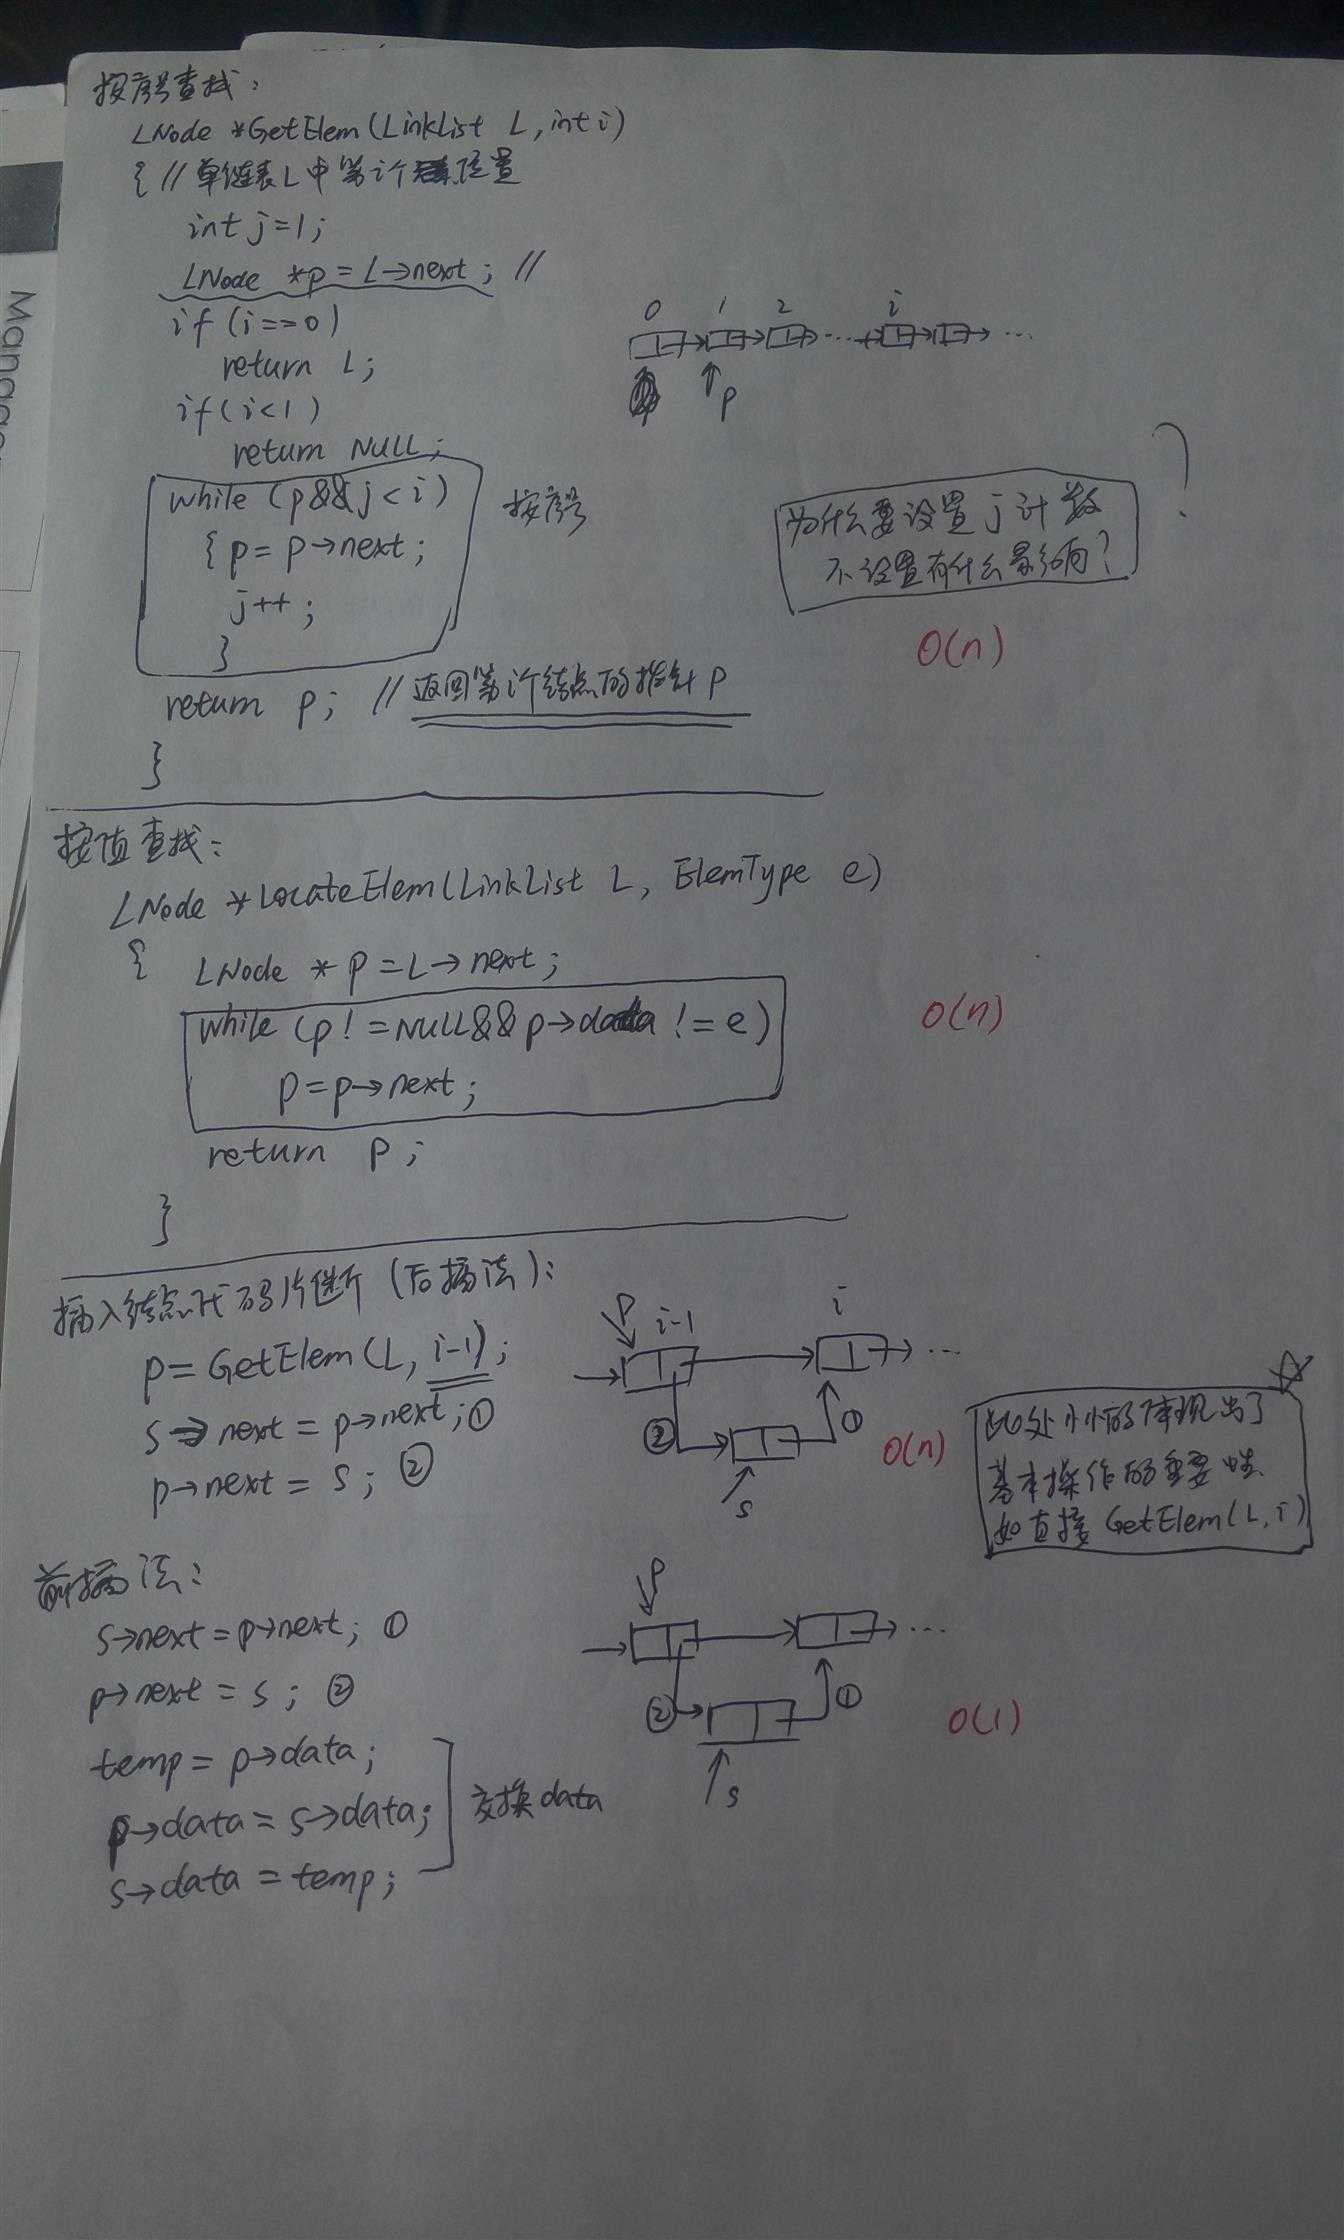 按序号查找:
LNode *GetElem(LinkList L, int i)
{ // 单链表L中第i个位置
int j=1;
LNode *p = L→next; //
if (i==0)
return L;
if (i<1)
return NULL;
while (p&&j<i)
{ p = p→next;
j++;
}
按序号
return p; // 返回第i个结点的指针p
}
0 1 2 ... i ...
p
为什么要设置j计数
不设置有什么影响?
?
O(n)
按值查找:
LNode *LocateElem(LinkList L, ElemType e)
{ LNode *p = L→next;
while (p!=NULL&&p→data != e)
p=p→next;
return p;
}
O(n)
插入结点代码片断 (后插法):
p= GetElem(L, i-1);
s→next = p→next; ①
p→next = s; ②
p i-1 i ...
② ①
s
O(n)
此处小小的体现出了
基本操作的重要性
如直接 GetElem(L, i)
前插法:
s→next = p→next; ①
p→next = s; ②
temp = p→data;
p→data = s→data;
s→data = temp;
交换data
p ...
② ①
s
O(1)
Manag